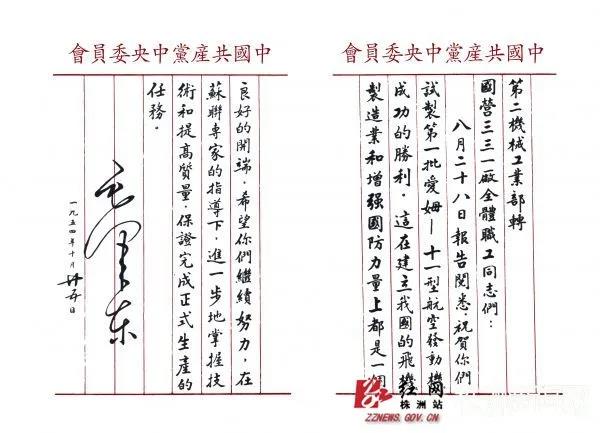 中國共産黨中央委員會
第二機械工業部轉
國營三三一廠全體職工同志們：
八月二十八日報告閱悉。祝賀你們
試製第一批愛姆—十一型航空發動機
成功的勝利。這在建立我國的飛
製造業和增强國防力量上都是一個
中國共産黨中央委員會
良好的開端。希望你們繼續努力，在
蘇聯專家的指導下，進一步地掌握技
術和提高質量，保證完成正式生產的
任務。
毛澤東
一九五四年十月廿五日
株洲站
ZZNEWS.GOV.CN